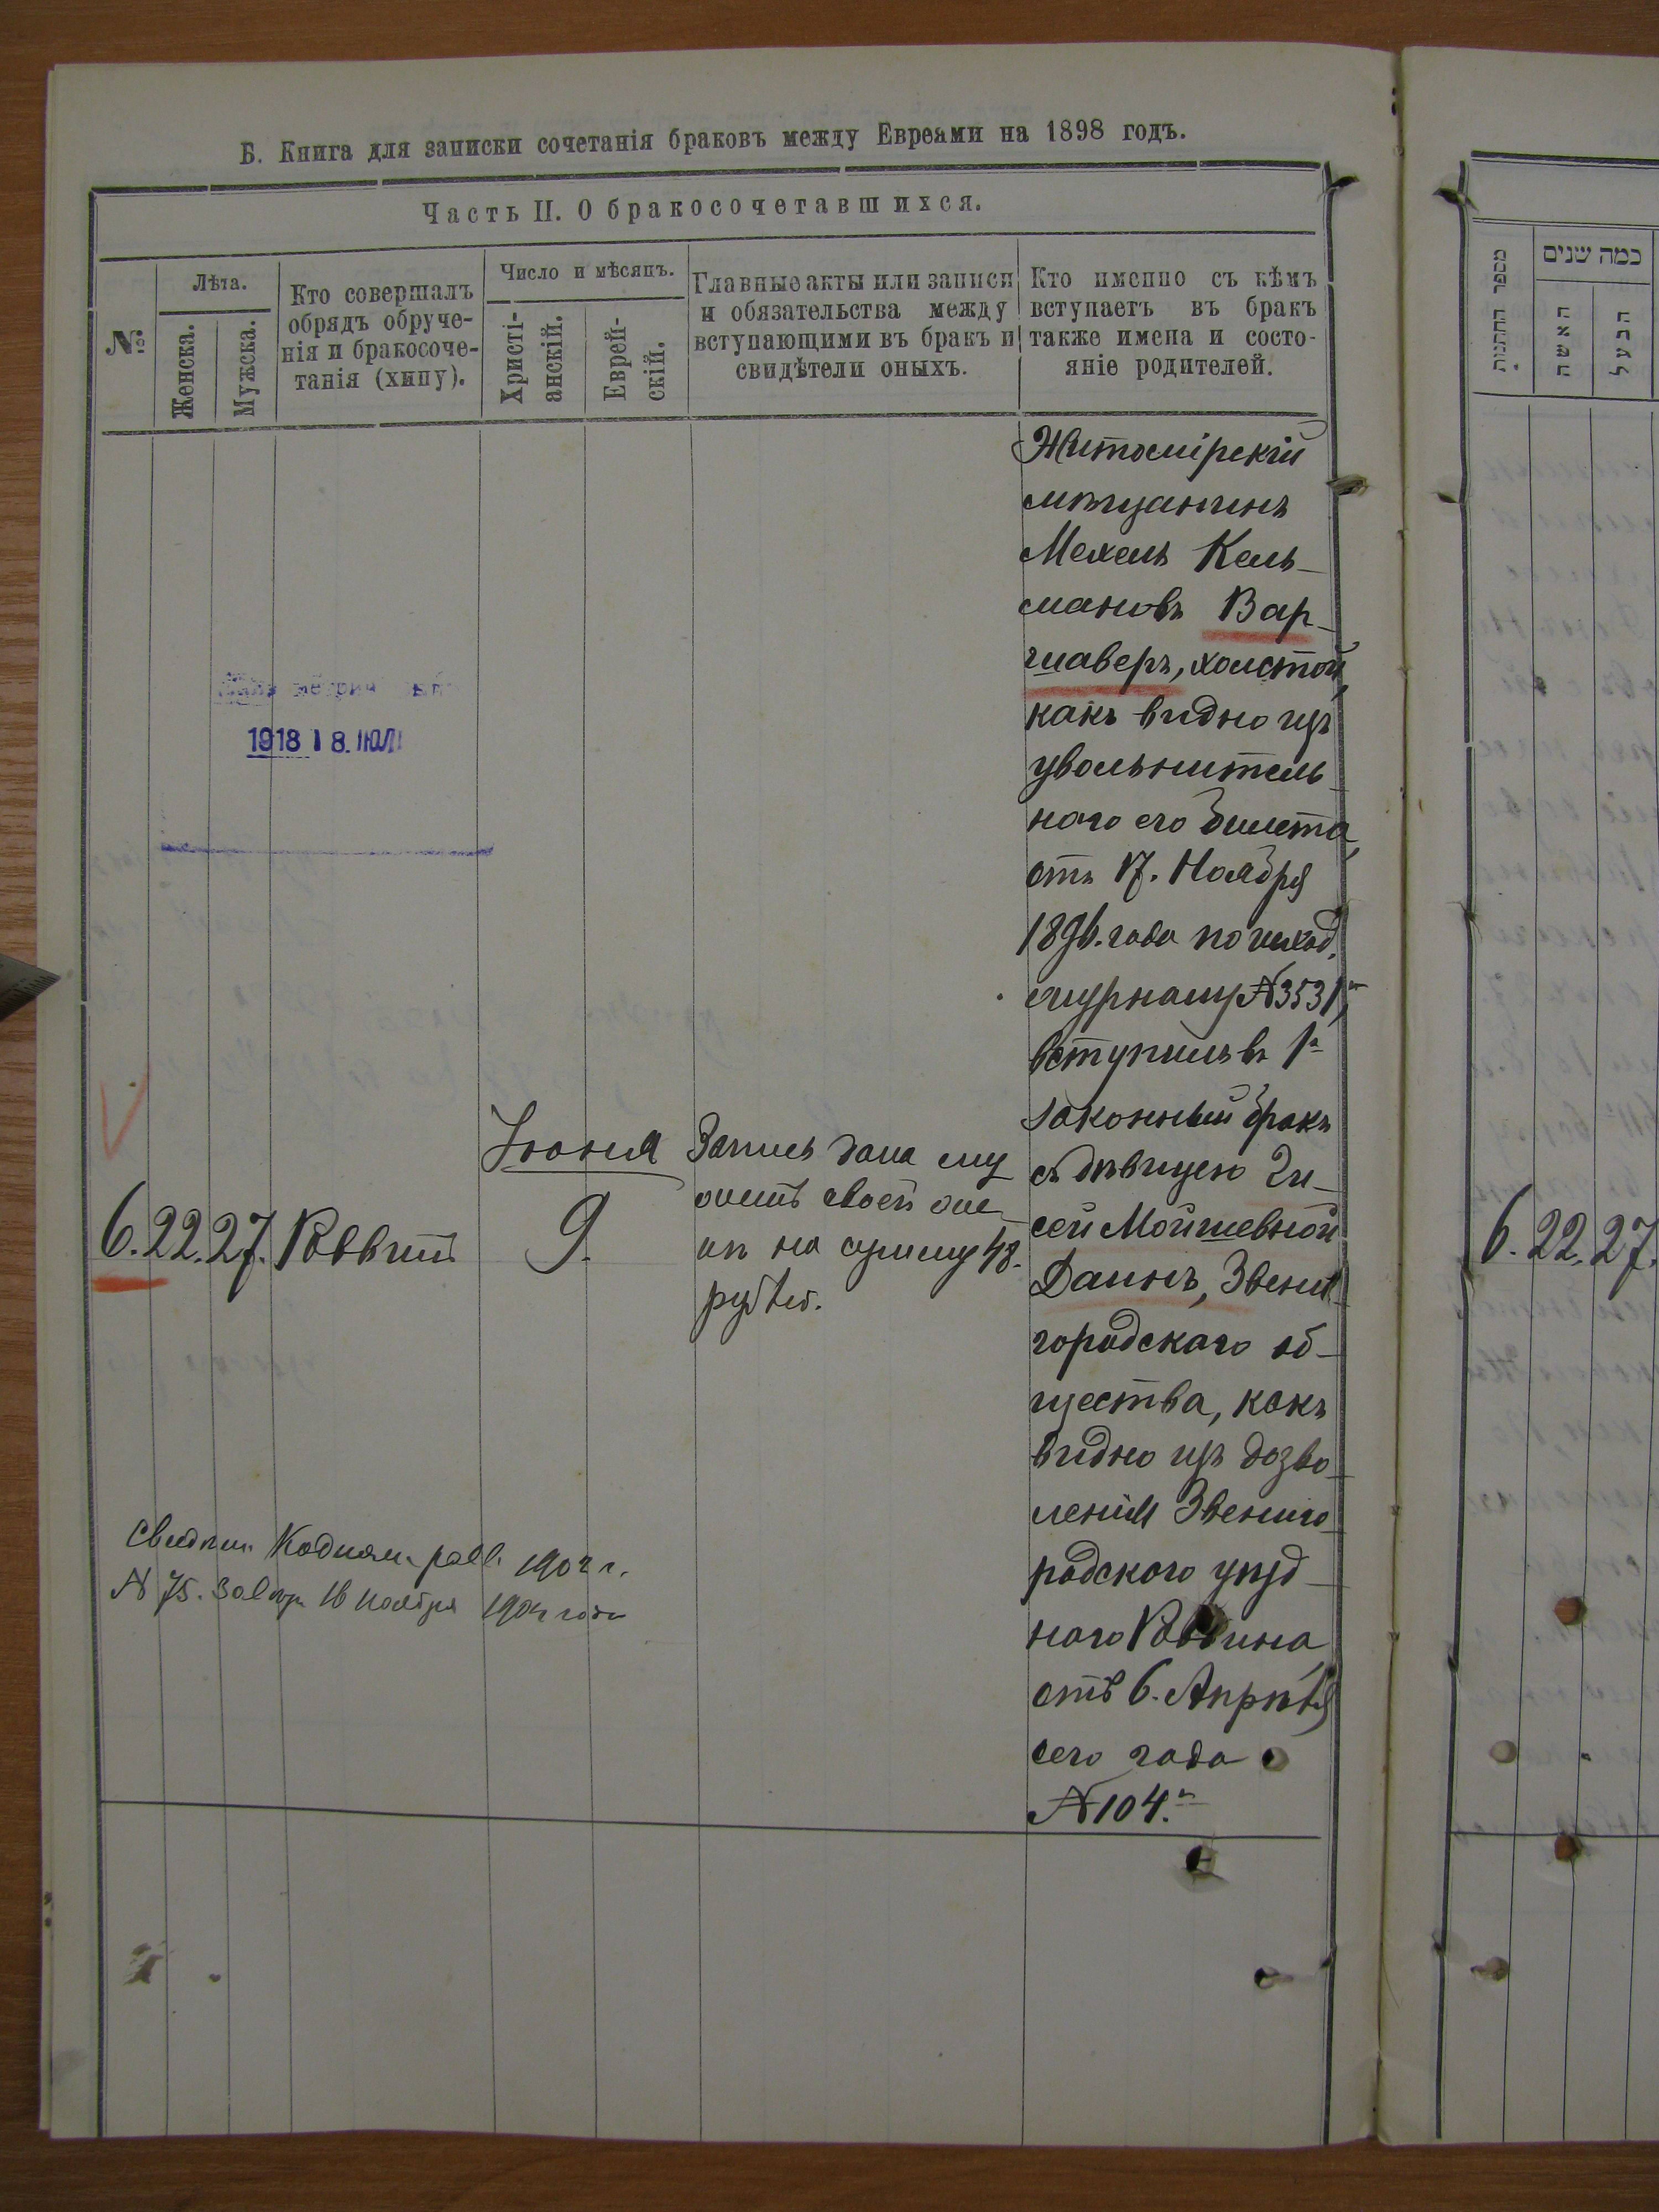 Б. Книга для записки сочетанія браковъ между Евреями на 1898 годъ.
Часть II. О бракосочетавшихся.
№
Лѣта.
Женска.
Мужска.
Кто совершалъ
обрядъ обруче-
нія и бракосоче-
танія (хипу).
Число и мѣсяцъ.
Христі-
анскій.
Еврей-
скій.
Главные акты или записи
и обязательства между
вступающими въ бракъ и
свидѣтели оныхъ.
Кто именно съ кѣмъ
вступаетъ въ бракъ
также имена и состо-
яніе родителей.
1918 18. ІЮЛ
6. 22. 27. Раввинъ
Іюня
9.
Запись дана му
жемъ своей же-
нѣ на сумму 48.
рублей.
Житомірскій
мѣщанинъ
Мехель Кель-
мановъ Вар-
шаверъ, холостой,
какъ видно изъ
увольнитель-
наго его билета,
отъ 17. Ноября
1896. года по исход.
журналу №3531,
вступилъ въ 1й
законный бракъ
съ дѣвицею Ги-
сей Мойшевной
Даинъ, Звени-
городскаго об-
щества, какъ
видно изъ дозво-
ленія Звениго-
родского уѣзд-
наго Раввина
отъ 6. Апрѣля
сего года
№104.
1902 г.
№ 75. 16 Ноября года
מספר החתונות
כמה שנים
האשה
הבעל
6. 22. 27.